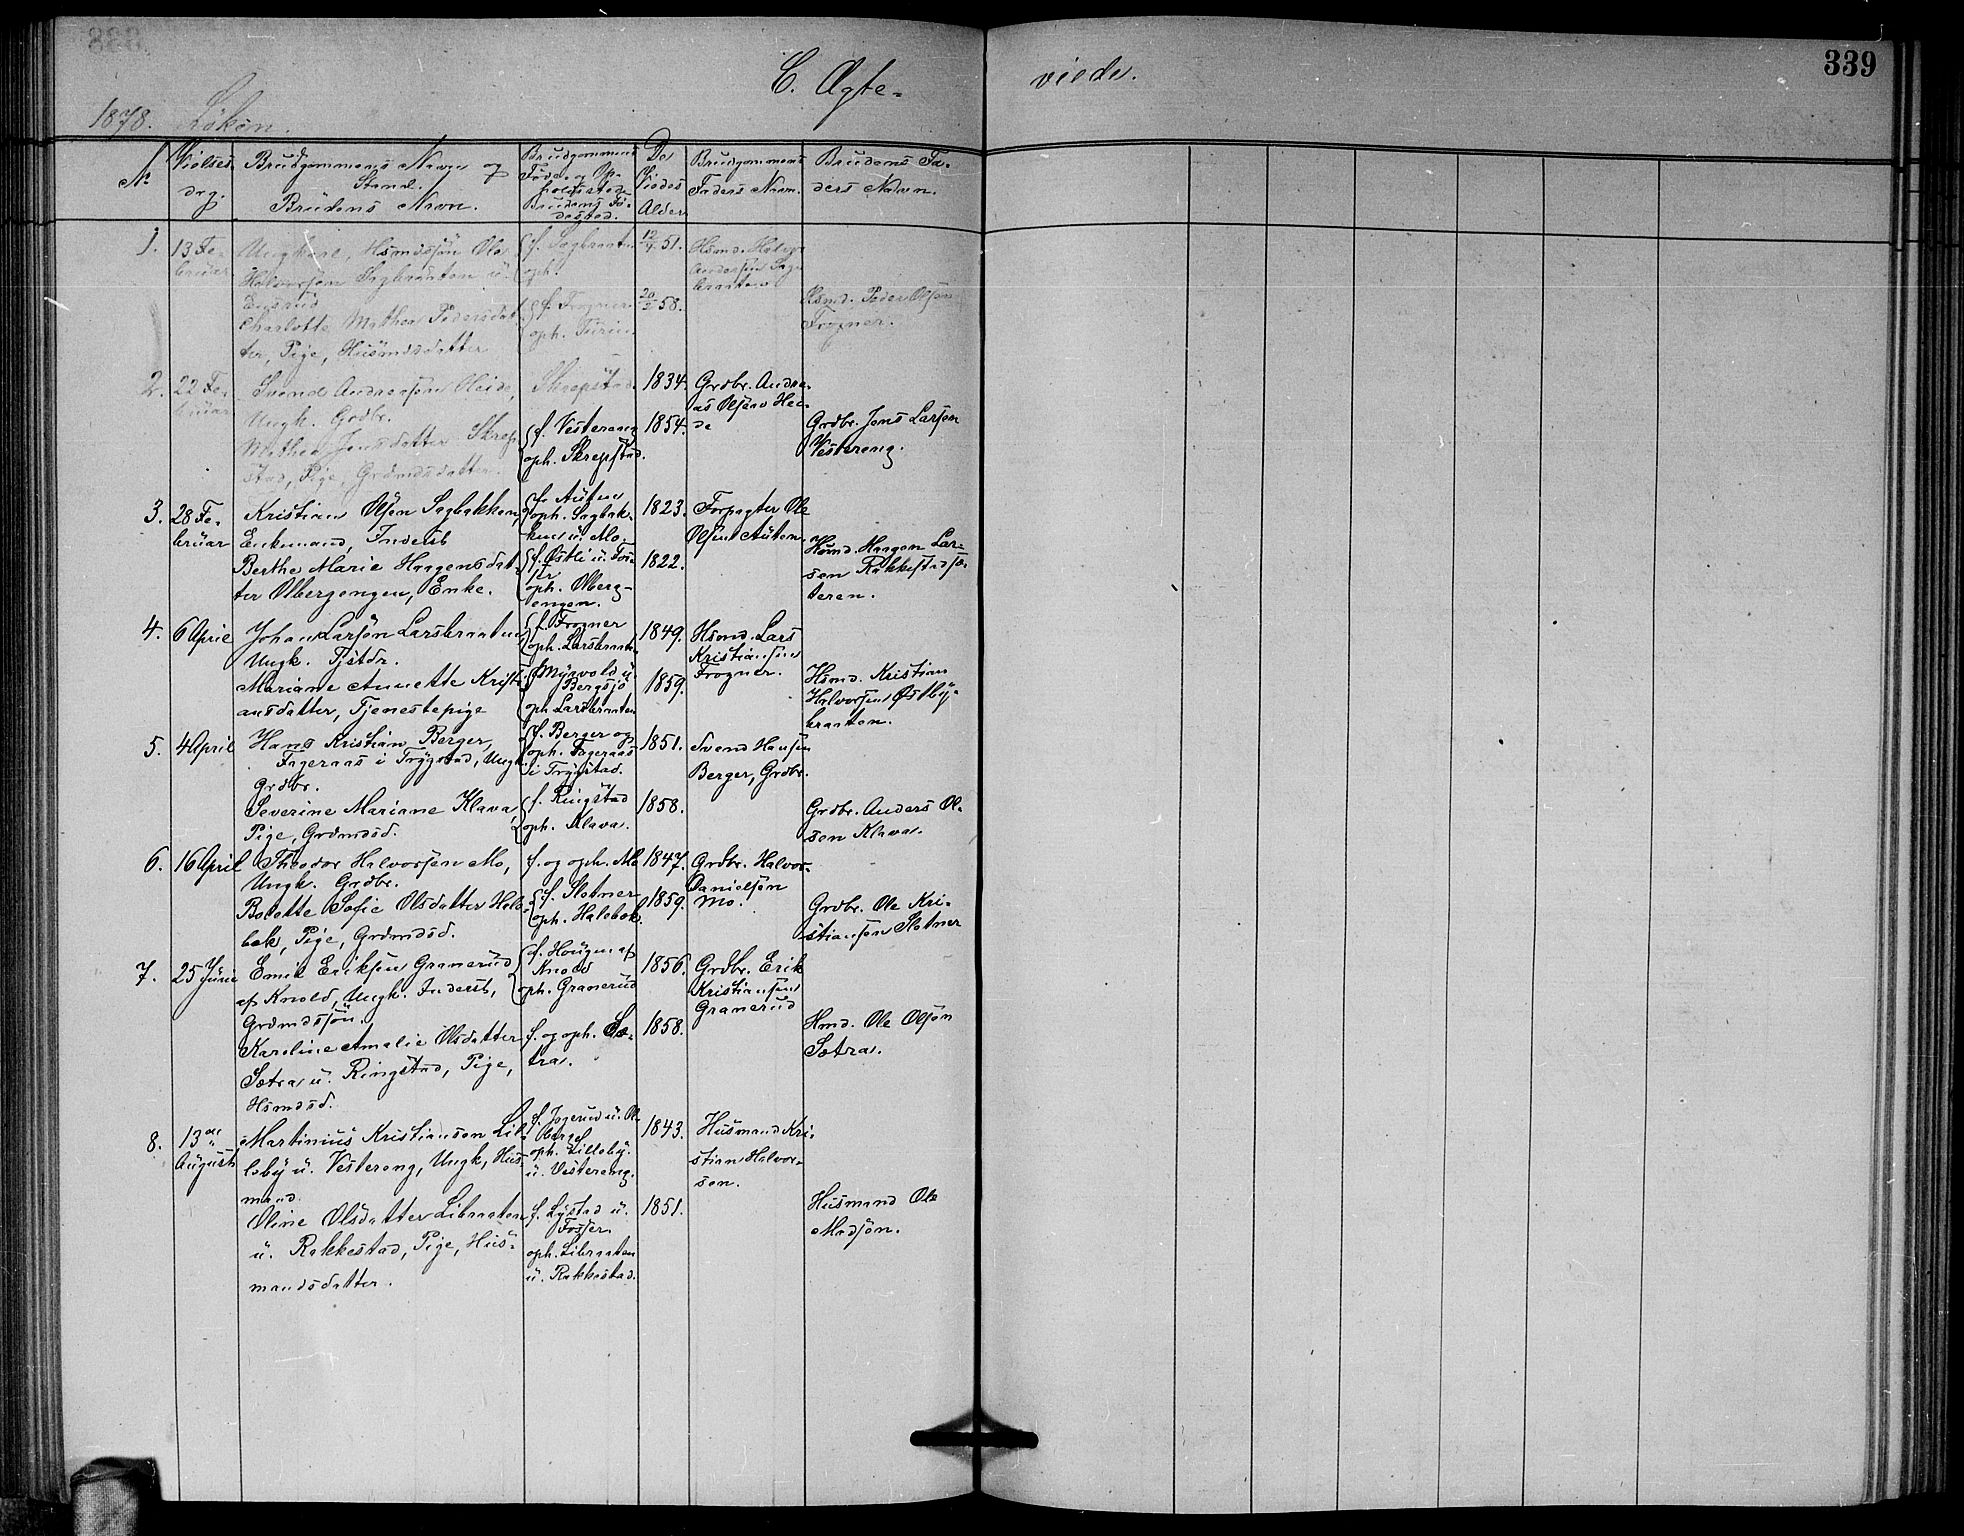 339
C. Ægte- viede.
1878. Løken.
No
Vielses-
dag.
Brudgommens Navn og
Stand.
Brudens Navn.
Brudgommens
Føde- og Op-
holdssted.
Brudens Fø-
dested.
De
Viedes
Alder
Brudgommens
Faders Navn.
Brudens Fa-
ders Navn.
1.
13 Fe-
bruar
Ungkarl, Hsmdssøn Ole
Halvorsen Sagbraaten u.
Enksrud
Charlotte Mathea Pedersdat-
ter, Pige, Husmdsdatter
f. Sagbraaten
oph.
f. Frogner
oph. Turin
12/4 51.
20/2 58.
Hsmd. Halvor
Andersen Sag-
braaten
Hsmd. Peder Olsen
Frogner.
2.
22 Fe-
bruar
Svend Andreasen Heide,
Ungk. Grdbr.
Mathea Jensdatter Skrep-
stad, Pige, Grdmdsdatter.
Skrepstad.
f. Vestereng
oph. Skrepstad.
1834.
1854.
Grdbr. Andre-
as Olsen Hei-
de
Grdbr. Jens Larsen
Vestereng.
3.
28 Fe-
bruar
Kristian Olsen Sagbakken,
Enkemand, Inderst
Berthe Marie Haagensdat-
ter Olbergengen, Enke.
f. Auten
oph. Sagbak-
ken u. Mo.
f. Østli u. Fos-
ser
oph. Olberg-
engen.
1823.
1822.
Forpagter Ole
Olsen Auten.
Hsmd. Haagen Lar-
sen Rakkestadsæ-
teren.
4.
6 April
Johan Larsen Larsbraaten
Ungk. Tjstdr.
Mariane Annette Kristi-
ansdatter, Tjenestepige
f. Frogner
oph. Larsbraaten
f. Myrvold u.
Bergsjø
oph. Larsbraaten
1849.
1859.
Hsmd. Lars
Kristiansen
Frogner.
Hsmd. Kristian
Halvorsen Østby-
braaten.
5.
4 April
Hans Kristian Berger,
Fageraas i Trygstad, Ungk.
Grdbr.
Severine Mariane Klava,
Pige, Grdmdsd.
f. Berger og
oph. Fageraas
i Trygstad.
f. Ringstad
oph. Klava.
1851.
1858.
Svend Hansen
Berger, Grdbr.
Grdbr. Anders Ol-
sen Klava.
6.
16 April
Theodor Halvorsen Mo,
Ungk. Grdbr.
Bolette Sofie Olsdatter Hale-
bæk, Pige, Grdmdsd.
f. og oph. Mo
f. Slotner
oph. Halebæk.
1847.
1859.
Grdbr. Halvor
Danielsen
Mo.
Grdbr. Ole Kri-
stiansen Slotner
7.
25 Juni
Emil Eriksen Granerud
af Knold, Ungk. Inderst,
Grdmdssøn.
Karoline Amalie Olsdatter
Sætra u. Ringstad, Pige,
Hsmdsd.
f. Haugen af
Knold
oph. Granerud
f. og oph. Sæ-
tra.
1856.
1858.
Grdbr. Erik
Kristiansen
Granerud
Hmd. Ole Olsen
Sætra.
8.
13de
August
Martinius Kristiansen Lil-
leby u. Vestereng, Ungk, Hus-
mand.
Oline Olsdatter Libraaten
u. Rakkestad, Pige, Hus-
mandsdatter.
f. Jogerud u. Ol-
berg
oph. Lilleby
u. Vestereng.
f. Lystad u.
Fosser.
oph. Libraaten
u. Rakkestad.
1843.
1851.
Husmand Kri-
stian Halvor-
sen.
Husmand Ole
Madsen.